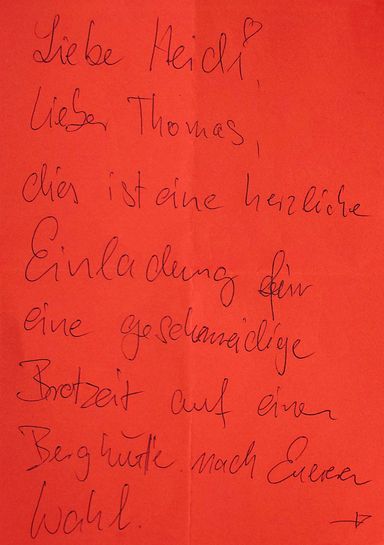 Liebe Heidi,
lieber Thomas,
dies ist eine herzliche
Einladung für
eine geschmeidige
Brotzeit auf einer
Berghütte nach Euerer
Wahl.